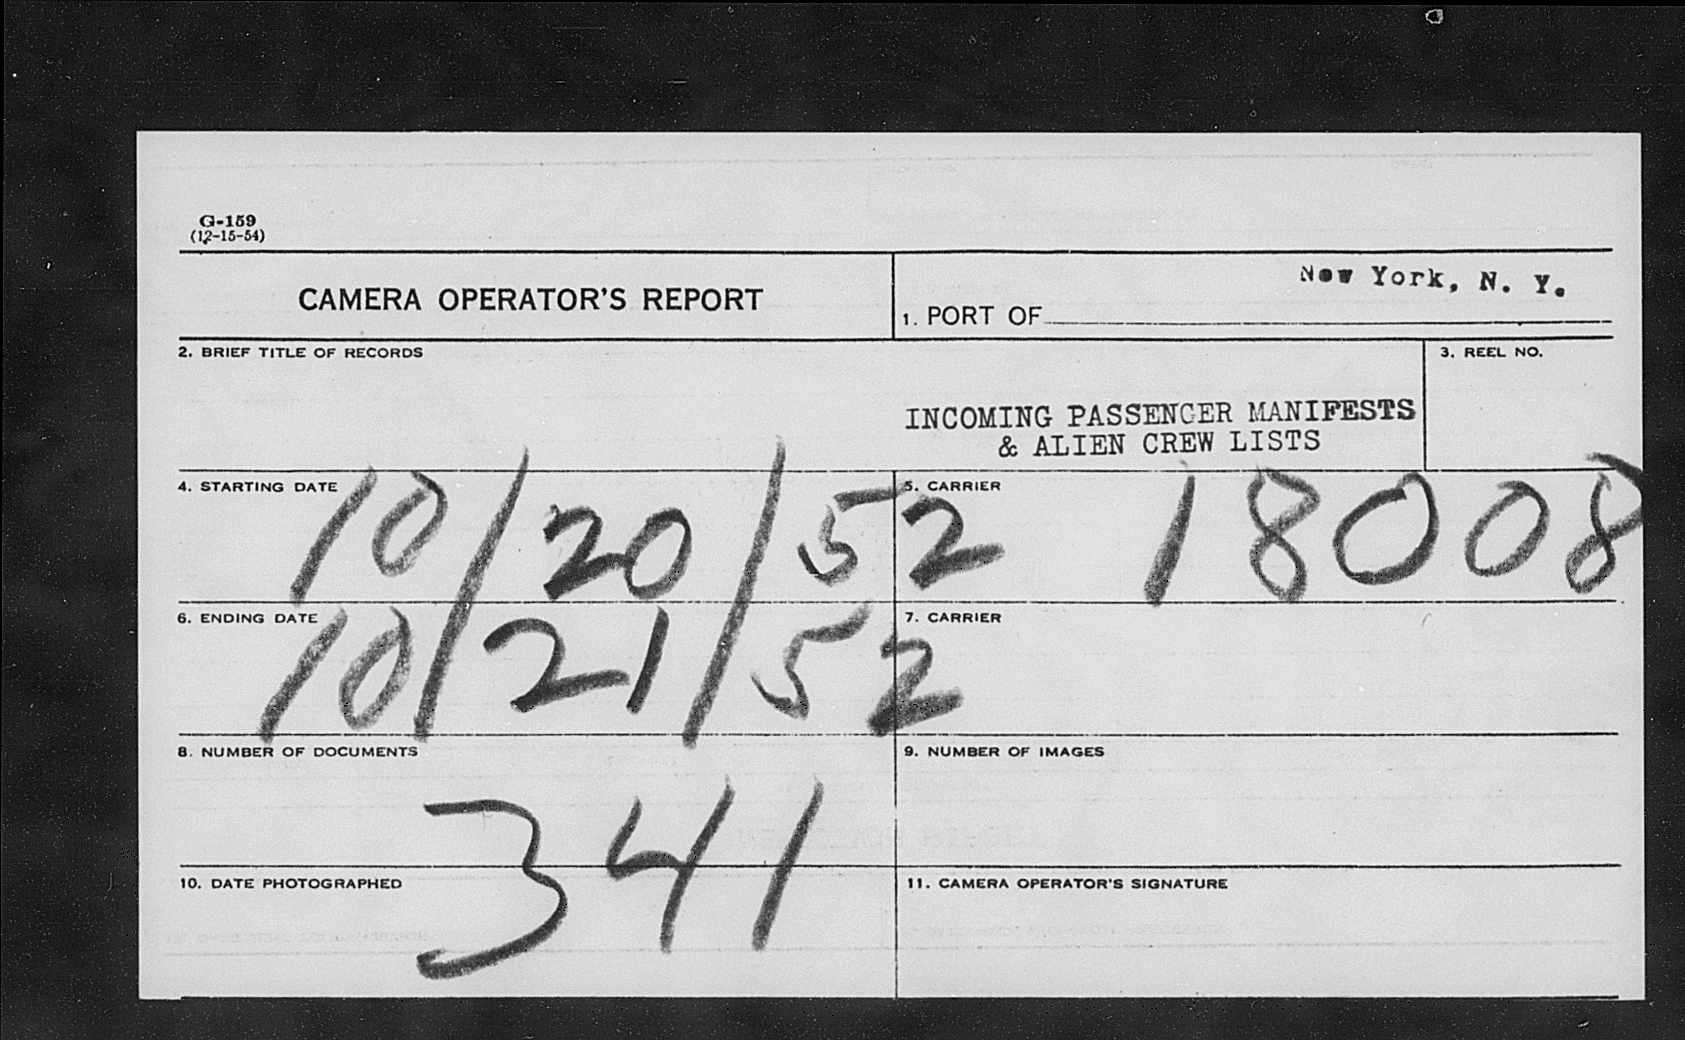 G-159
(12-15-54)
CAMERA OPERATOR'S REPORT
1. PORT OF New York, N. Y.
2. BRIEF TITLE OF RECORDS
3. REEL NO.
INCOMING PASSENGER MANIFESTS
& ALIEN CREW LISTS
4. STARTING DATE
10/20/52
5. CARRIER
18008
6. ENDING DATE
10/21/52
7. CARRIER
8. NUMBER OF DOCUMENTS
341
9. NUMBER OF IMAGES
10. DATE PHOTOGRAPHED
11. CAMERA OPERATOR'S SIGNATURE